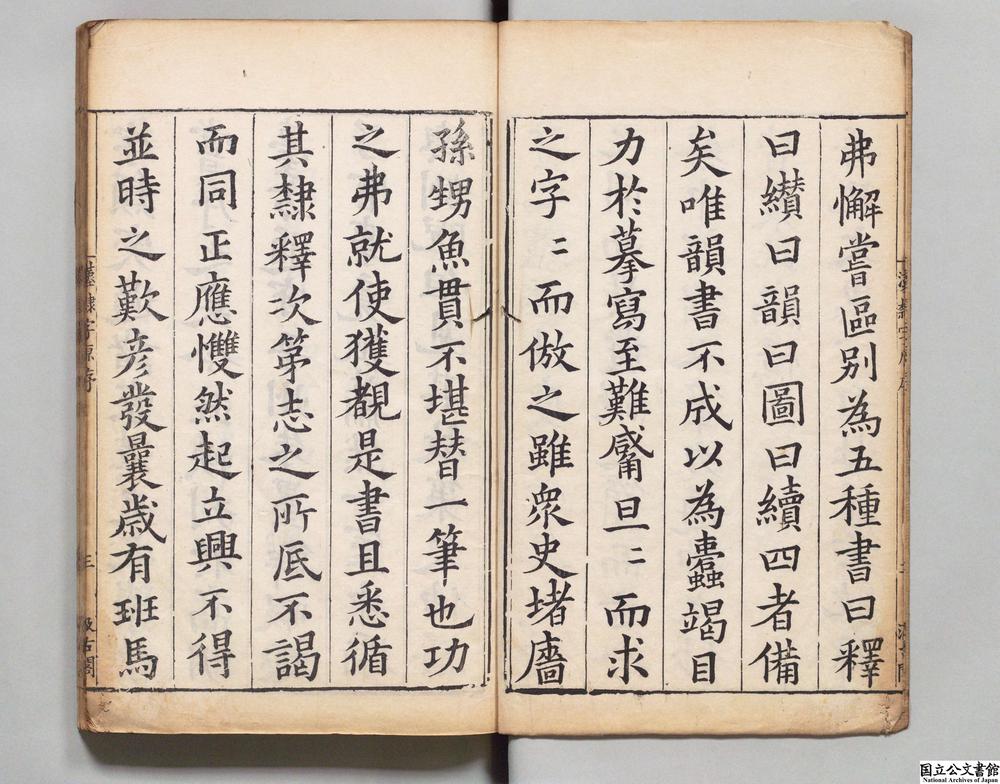 弗懈嘗區别為五種書曰釋
曰纘曰韻曰圖曰續四者備
矣唯韻書不成以為蠹竭目
力於摹寫至難觱旦二而求
之字二而倣之雖衆史堵牆
孫甥魚貫不堪替一筆也功
之弗就使獲覩是書且悉循
其隸釋次第志之所底不謁
而同正應戄然起立興不得
並時之歎彦發曩歲有班馬
漢隸字源序
三
汲古閣
国立公文書館
National Archives of Japan